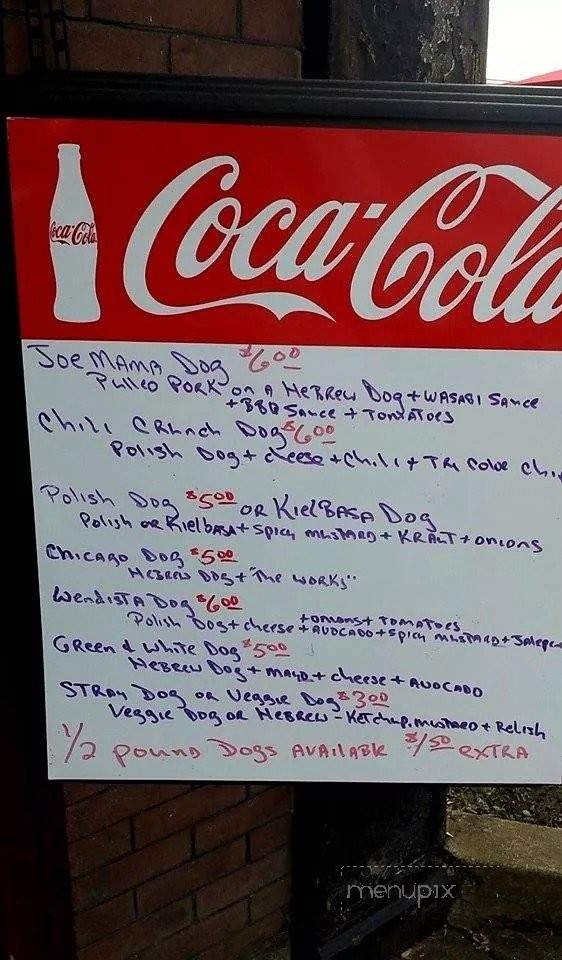 Coca-Cola
Coca-Cola
JOE MAMA DOG $6.00
PULLED PORK ON A HEBREW DOG + WASABI SAUCE
+ BBQ SAUCE + TOMATOES
CHILI CRUNCH DOG $6.00
POLISH DOG + CHEESE + CHILI + TRI COLOR CHI
POLISH DOG $5.00 OR KIELBASA DOG
POLISH OR KIELBASA + SPICY MUSTARD + KRAUT + ONIONS
CHICAGO DOG $5.00
HEBREW DOG + "THE WORKS"
WENDISTA DOG $6.00
+ ONIONS + TOMATOES
POLISH DOG + CHEESE + AVOCADO + SPICY MUSTARD + JALEPE
GREEN & WHITE DOG $5.00
HEBREW DOG + MAYO + CHEESE + AVOCADO
STRAY DOG OR VEGGIE DOG $3.00
VEGGIE DOG OR HEBREW - KETCHUP, MUSTARD + RELISH
1/2 POUND DOGS AVAILABLE $1.50 EXTRA
menupix